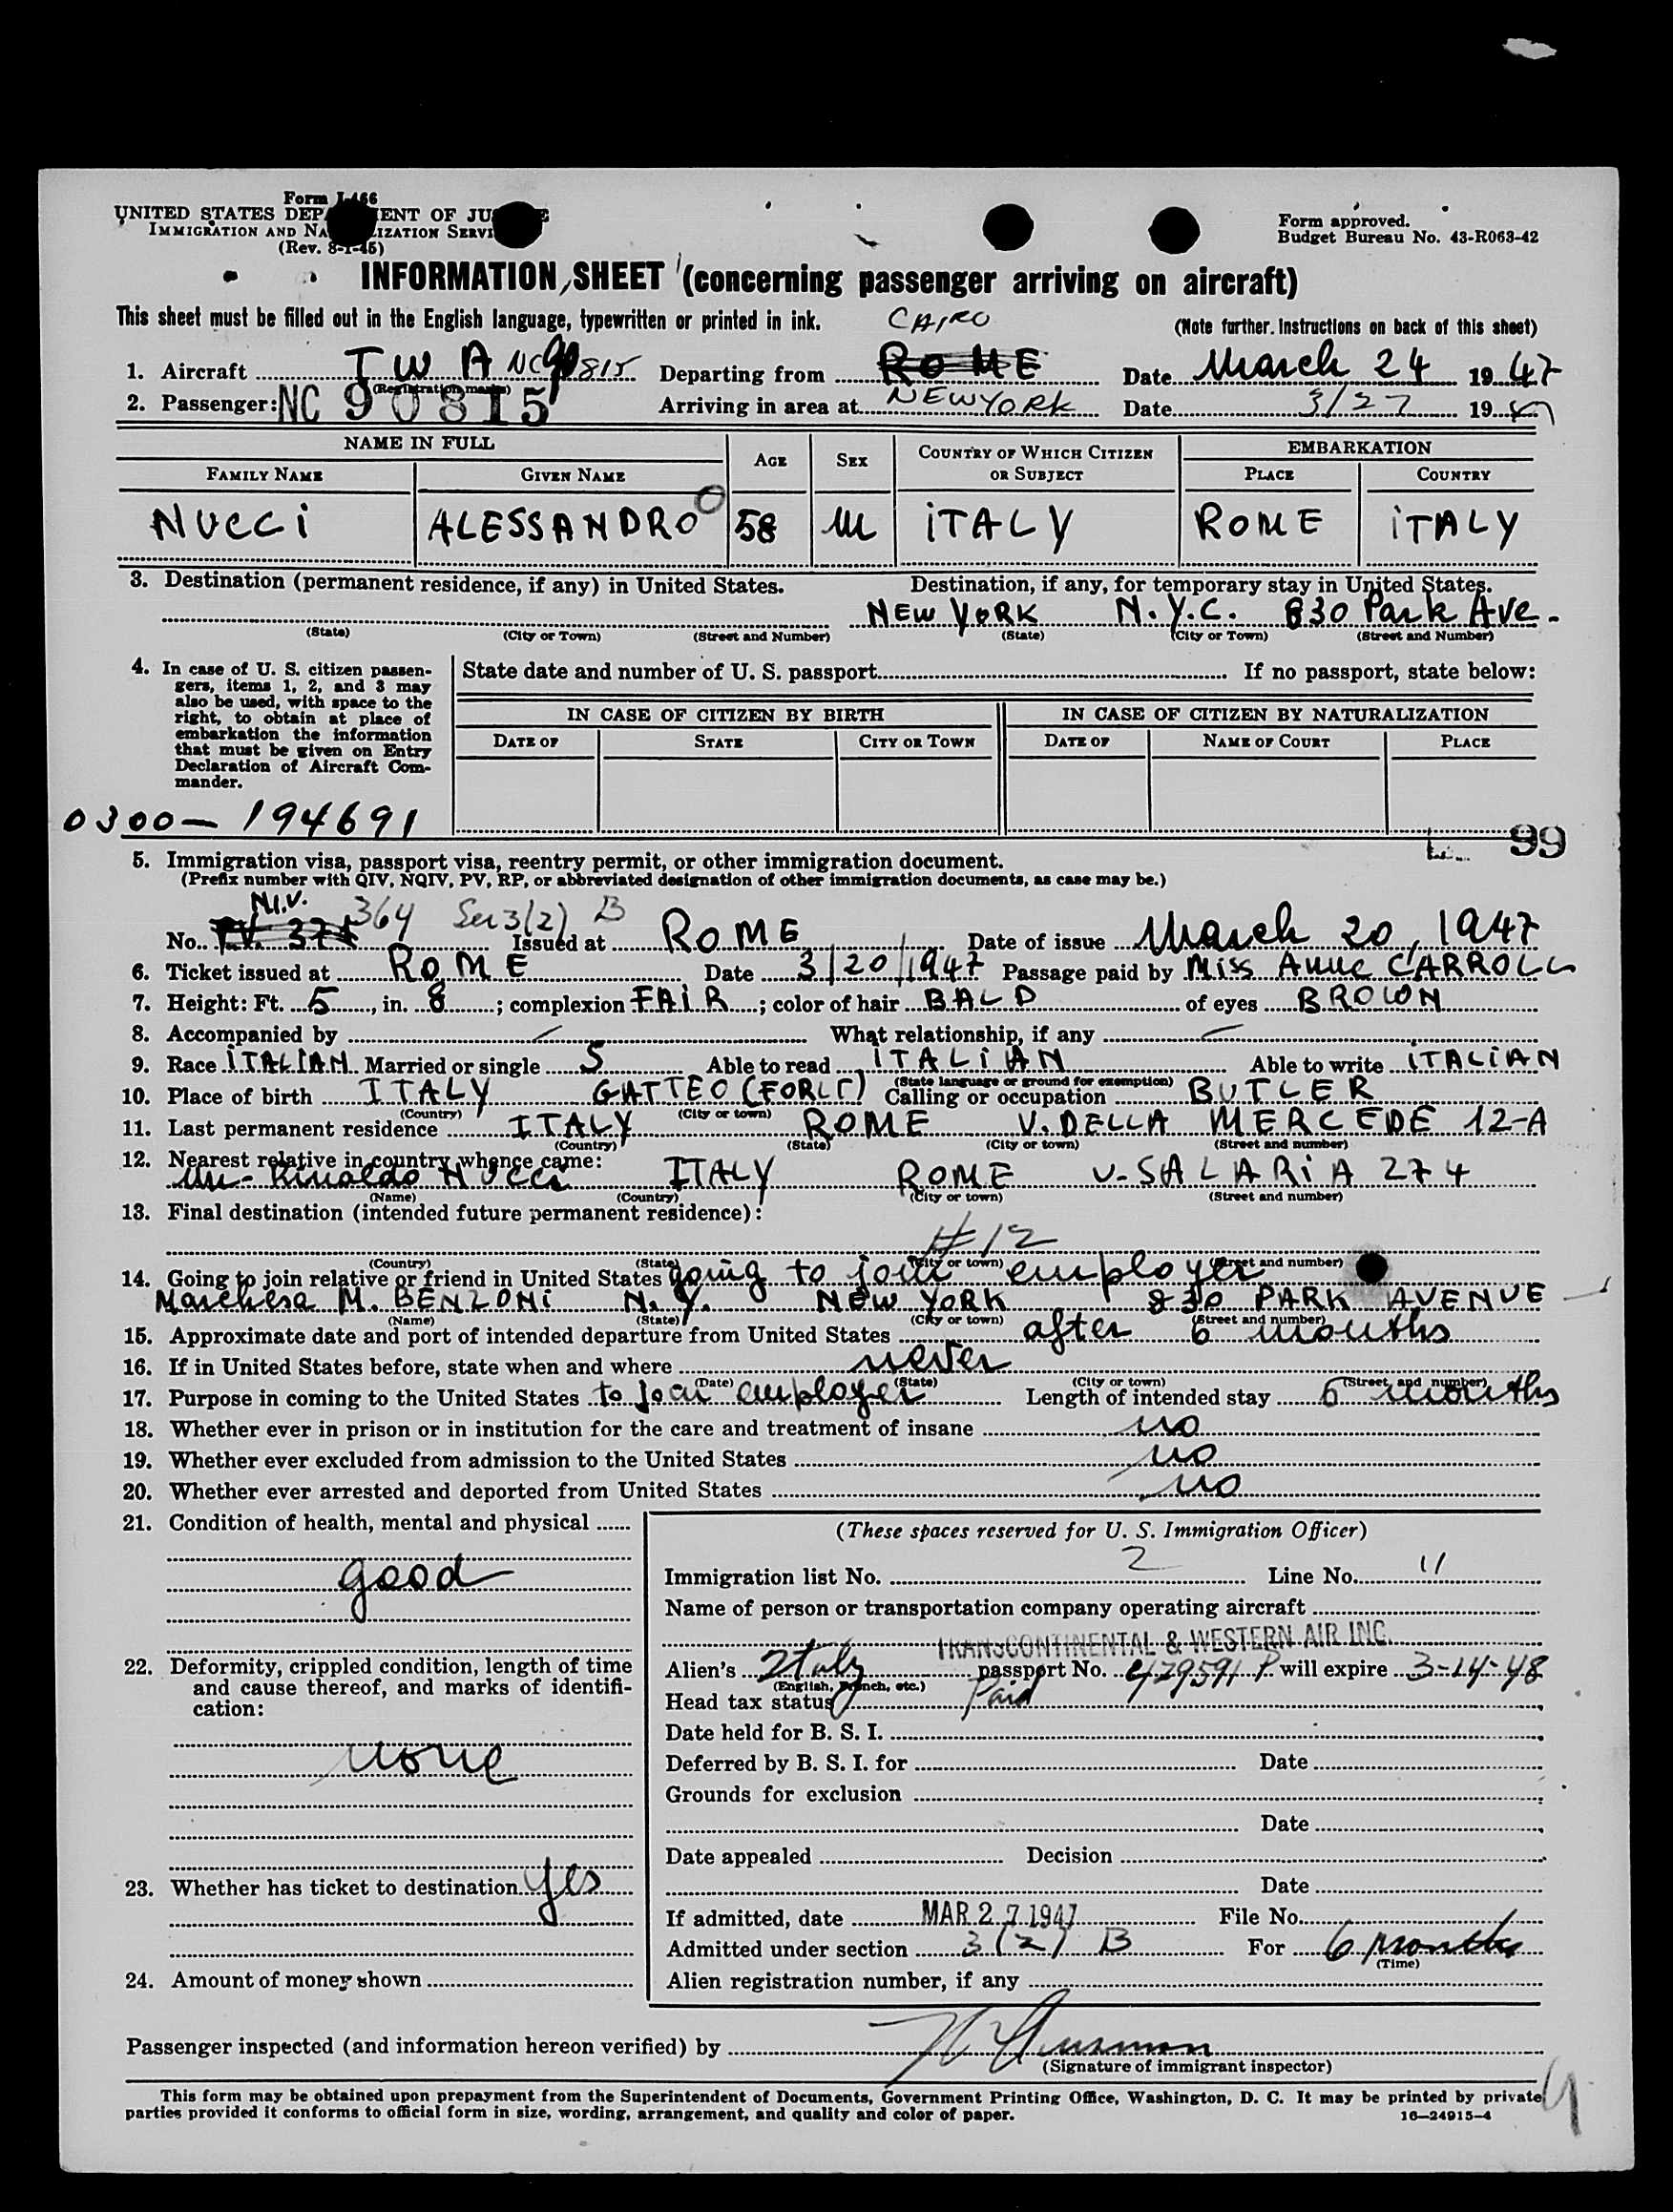 Form I-466
UNITED STATES DEPARTMENT OF JUSTICE
IMMIGRATION AND NATURALIZATION SERVICE
(Rev. 8-1-45)
Form approved.
Budget Bureau No. 43-R063-42
INFORMATION SHEET (concerning passenger arriving on aircraft)
This sheet must be filled out in the English language, typewritten or printed in ink.
(Note further. Instructions on back of this sheet)
CAIRO
1. Aircraft TWA NC 90815 Departing from ROME Date March 24 1947
(Registration marks)
2. Passenger: NC 90815 Arriving in area at NEW YORK Date 3/27 19 47
NAME IN FULL AGE SEX COUNTRY OF WHICH CITIZEN OR SUBJECT EMBARKATION
FAMILY NAME GIVEN NAME PLACE COUNTRY
NUCCI ALESSANDRO 58 M ITALY ROME ITALY
3. Destination (permanent residence, if any) in United States. Destination, if any, for temporary stay in United States.
NEW YORK N.Y.C. 830 Park Ave.
(State) (City or Town) (Street and Number) (State) (City or Town) (Street and Number)
4. In case of U. S. citizen passengers, items 1, 2, and 3 may also be used, with space to the right, to obtain at place of embarkation the information that must be given on Entry Declaration of Aircraft Commander.
State date and number of U. S. passport If no passport, state below:
IN CASE OF CITIZEN BY BIRTH IN CASE OF CITIZEN BY NATURALIZATION
DATE OF STATE CITY OR TOWN DATE OF NAME OF COURT PLACE
0300-194691
99
5. Immigration visa, passport visa, reentry permit, or other immigration document.
(Prefix number with QIV, NQIV, PV, RP, or abbreviated designation of other immigration documents, as case may be.)
N.I.V. 364 Sec 3(2) B
No. P.V. 374 Issued at ROME Date of issue March 20, 1947
6. Ticket issued at ROME Date 3/20/1947 Passage paid by Miss Anne CARROLL
7. Height: Ft. 5, in. 8; complexion FAIR; color of hair BALD of eyes BROWN
8. Accompanied by What relationship, if any
9. Race ITALIAN Married or single S Able to read ITALIAN Able to write ITALIAN
(State language or ground for exemption)
10. Place of birth ITALY GATTEO (FORLI) Calling or occupation BUTLER
(Country) (City or town)
11. Last permanent residence ITALY ROME V. DELLA MERCEDE 12-A
(Country) (State) (City or town) (Street and number)
12. Nearest relative in country whence came:
Mr. Rinaldo Nucci ITALY ROME V. SALARIA 274
(Name) (Country) (City or town) (Street and number)
13. Final destination (intended future permanent residence):
#12
(Country) (State) (City or town) (Street and number)
14. Going to join relative or friend in United States going to join employer
Marchesa M. BENZONI N.Y. NEW YORK 830 PARK AVENUE
(Name) (State) (City or town) (Street and number)
15. Approximate date and port of intended departure from United States after 6 months
16. If in United States before, state when and where never
(Date) (State) (City or town) (Street, and number)
17. Purpose in coming to the United States to join employer Length of intended stay 6 months
18. Whether ever in prison or in institution for the care and treatment of insane no
19. Whether ever excluded from admission to the United States no
20. Whether ever arrested and deported from United States no
21. Condition of health, mental and physical
good
22. Deformity, crippled condition, length of time and cause thereof, and marks of identification:
none
23. Whether has ticket to destination Yes
24. Amount of money shown
(These spaces reserved for U. S. Immigration Officer)
Immigration list No. 2 Line No. 11
Name of person or transportation company operating aircraft
TRANSCONTINENTAL & WESTERN AIR INC.
Alien's Italy passport No. 479591 P will expire 3-14-48
(English, French, etc.)
Head tax status Paid
Date held for B. S. I.
Deferred by B. S. I. for Date
Grounds for exclusion
Date
Date appealed Decision
Date
If admitted, date MAR 27 1947 File No.
Admitted under section 3(2) B For 6 months
(Time)
Alien registration number, if any
Passenger inspected (and information hereon verified) by
(Signature of immigrant inspector)
This form may be obtained upon prepayment from the Superintendent of Documents, Government Printing Office, Washington, D. C. It may be printed by private
parties provided it conforms to official form in size, wording, arrangement, and quality and color of paper.
16—24915-4